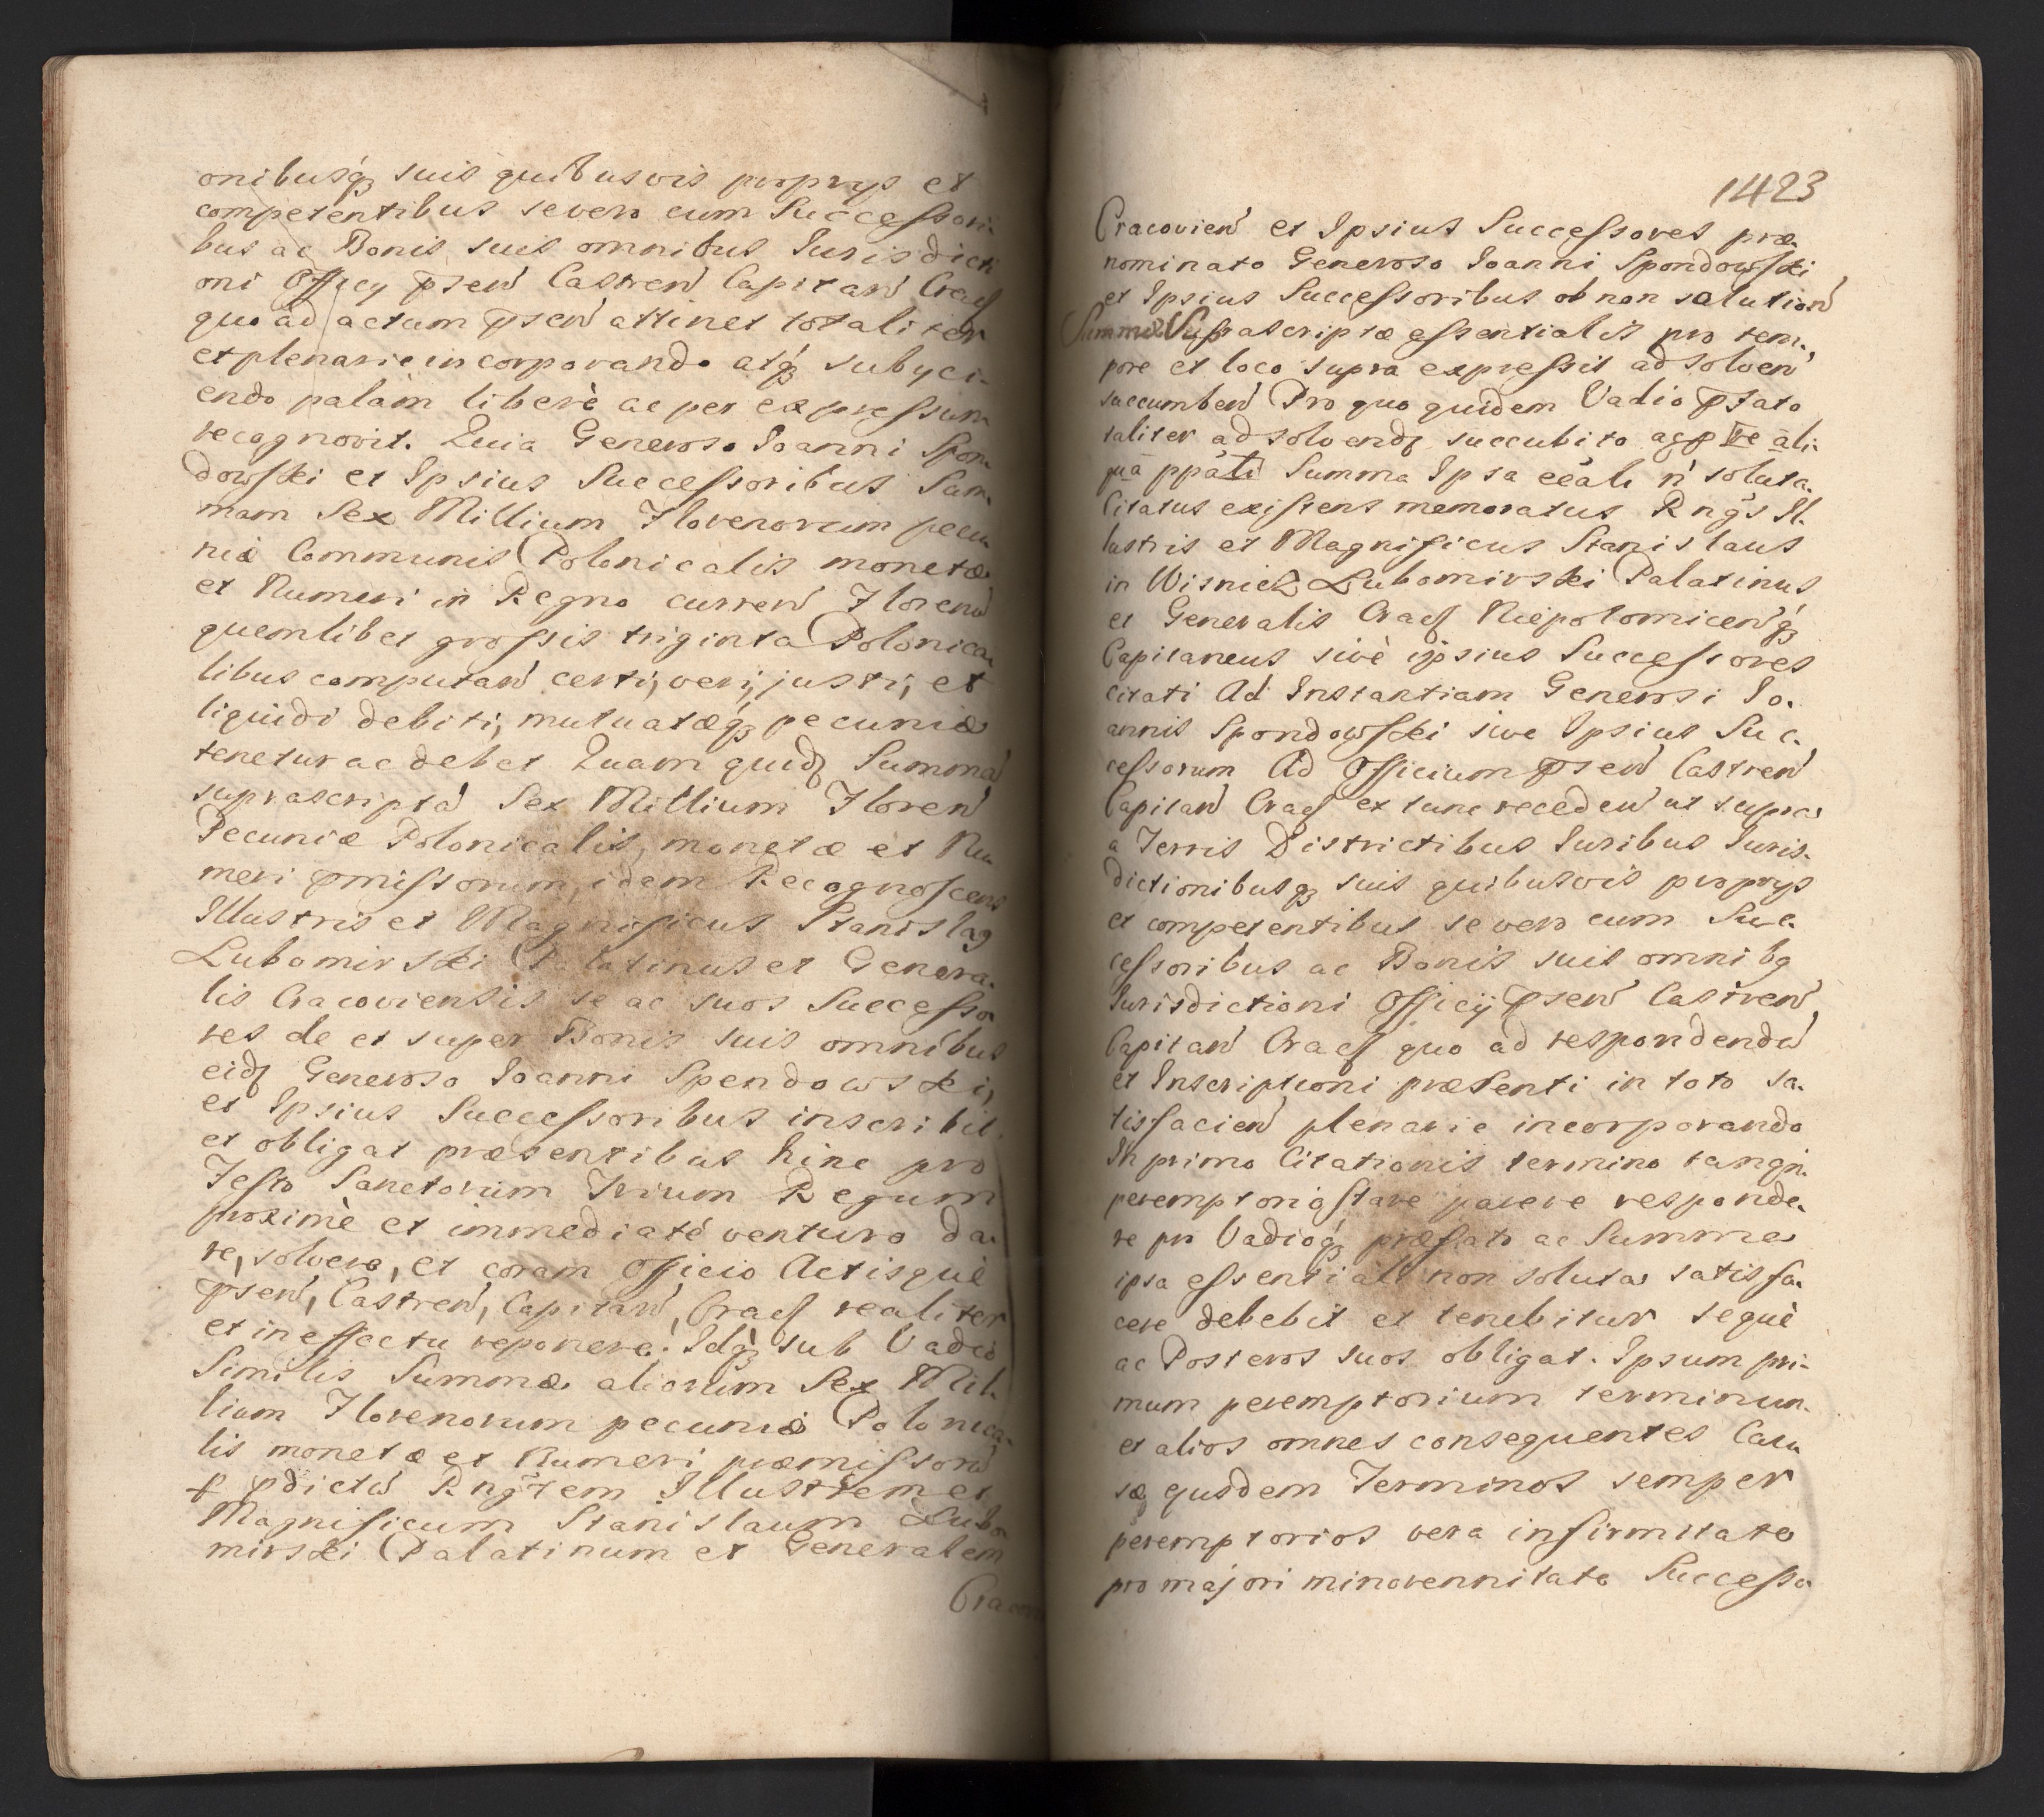 onibusq́ʒ suis quibusvis proprys et
competentibus se vero cum Successori-
bus ac Bonis suis omnibus Jurisdicti
oni Officy p̄sen̄ Castren̄ Capitan̄ Cracſ
quo ad actum p̄sen̄ attinet totaliter
et plenarie incorporando atq́ʒ subyci-
endo palàm liberè ac per expressum
recognovit. Quia Generoso Joanni Spon-
dowski et Ipsius Successoribus Sum-
mam Sex Millium Florenorum pecu-
niæ Communis Polonicalis monetæ
et Numeri in Regno curren̄ Floren̄
quemlibet grossis triginta Polonica-
libus computan̄ certi, veri, justi, et
liquidi debiti, mutuatæq́ʒ pecuniæ
tenetur ac debet Quam quidſ Summā
suprascriptā Sex Millium Floren̄
Pecuniæ Polonicalis, monetæ et Nu-
meri p̄missorum, idem Recognoscens
Illustris et Magnificus Stanislaꝯ
Lubomirski Palatinus et Genera-
lis Cracoviensis se ac suos Successo-
res de et super Bonis suis omnibus
eidſ Generoso Joanni Spendowski,
et Ipsius Successoribus inscribit
et obligat præsentibus hinc pro
Festo Sanctorum Trium Regum
proximè et immediaté venturo da-
re, solvere, et coram Officio Actisquè
p̄sen̄, Castren̄, Capitan̄, Cracſ realiter
et in effectu reponere. Idq́ʒ sub Vadio
Similis Summæ aliorum Sex Mil-
lium Florenorum pecuniæ Polonica-
lis monetæ et Numeri præmissorū
ꝑ p̄dictū Rngn̄tem Illustrem et
Magnificum Stanislaum Lubo-
mirski Palatinum et Generalem
Cracovi
1423
Cracovien̄ et Ipsius Successores præ-
nominato Generoso Joanni Spondowski
et Ipsius Successoribus ob non solution̄
Summæ Suprascriptæ essentialis pro tem-
pore et loco supra expressis ad solven̄
succumben̄ Pro quo quidem Vadio p̄fato
taliter ad solvendſ succubito ali-
quā Summa Ipsa eēāli n̄ soluta.
Citatus existens memoratus Rngn̄s Il-
lustris et Magnificus Stanislaus
in Wisnicz Lubomirski Palatinus
et Generalis Cracſ Niepolomicen̄q́ʒ
Capitaneus sivè ipsius Successores
citati Ad Instantiam Generosi Jo-
annis Spondowski sive Ipsius Suc-
cessorum Ad Officium p̄sen̄ Castren̄
Capitan̄ Cracſ ex tunc receden̄ ut supra
a Terris Districtibus Juribus Juris-
dictionibusqʒ suis quibusvis proprys
et competentibus se vero cum Suc-
cessoribus ac Bonis suis omnibꝯ
Jurisdictioni Officij p̄sen̄ Castren̄
Capitan̄ Cracſ quo ad respondendū
et Inscriptioni præsenti in toto sa-
tisfacien̄ plenarie incorporando
In primo Citationis termino tanqn̄
peremptorio stare parere responde-
re pro Vadioq́ʒ præfato ac Summa
ipsa essentiali non soluta satisfa-
cere debebit et tenebitur sequè
ac Posteros suos obligat. Ipsum pri-
mum peremptorium terminum
et alios omnes consequentes Cau-
sæ ejusdem Terminos semper
peremptorios vera infirmitate
pro majori minorennitate Successo